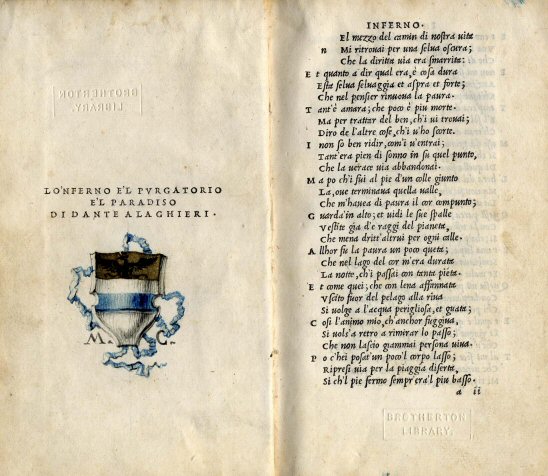 BROTHERTON
LIBRARY.
LO'NFERNO E'L PVRGATORIO
E'L PARADISO
DI DANTE ALAGHIERI.
M. C.
INFERNO.
El mezzo del camin di nostra uita
n Mi ritrouai per una selua oscura;
Che la diritta uia era smarrita:
E t quanto a dir qual era, è cosa dura
Esta selua seluaggia et aspra et forte;
Che nel pensier rinuoua la paura.
T ant'è amara; che poco è piu morte.
Ma per trattar del ben, ch'i ui trouai;
Diro de l'altre cose, ch'i u'ho scorte.
I non so ben ridir, com'i u'entrai;
Tant'era pien di sonno in su quel punto,
Che la uerace uia abbandonai.
M a po ch'i fui al pie d'un colle giunto
La, oue terminaua quella ualle,
Che m'hauea di paura il cor compunto;
G uarda'in alto; et uidi le sue spalle
Vestite gia de raggi del pianeta,
Che mena dritt'altrui per ogni calle.
A llhor fu la paura un poco queta;
Che nel lago del cor m'era durata
La notte, ch'i passai con tanta pieta.
E t come quei; che con lena affannata
Vscito fuor del pelago alla riua
Si uolge a l'acqua perigliosa, et guata;
C osi l'animo mio, ch'anchor fuggiua,
Si uols'a retro a rimirar lo passo;
Che non lascio giammai persona uiua.
P o c'hei posat'un poco'l corpo lasso;
Ripresi uia per la piaggia diserta,
Si ch'l pie fermo sempr'era'l piu basso.
a ii
BROTHERTON
LIBRARY.